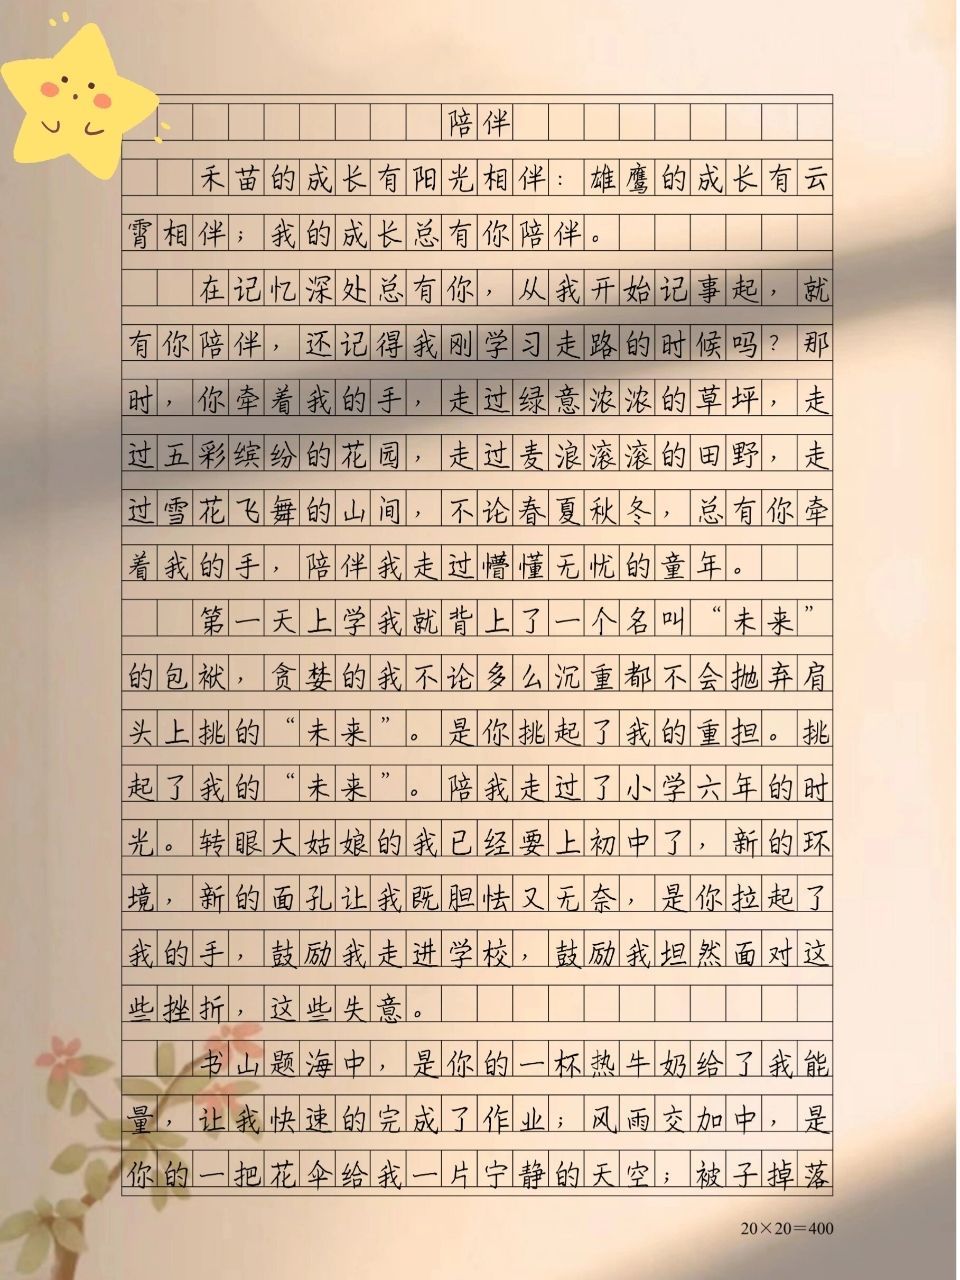 陪伴
禾苗的成长有阳光相伴：雄鹰的成长有云
霄相伴；我的成长总有你陪伴。
在记忆深处总有你，从我开始记事起，就
有你陪伴，还记得我刚学习走路的时候吗？那
时，你牵着我的手，走过绿意浓浓的草坪，走
过五彩缤纷的花园，走过麦浪滚滚的田野，走
过雪花飞舞的山间，不论春夏秋冬，总有你牵
着我的手，陪伴我走过懵懂无忧的童年。
第一天上学我就背上了一个名叫“未来”
的包袱，贪婪的我不论多么沉重都不会抛弃肩
头上挑的“未来”。是你挑起了我的重担。挑
起了我的“未来”。陪我走过了小学六年的时
光。转眼大姑娘的我已经要上初中了，新的环
境，新的面孔让我既胆怯又无奈，是你拉起了
我的手，鼓励我走进学校，鼓励我坦然面对这
些挫折，这些失意。
书山题海中，是你的一杯热牛奶给了我能
量，让我快速的完成了作业；风雨交加中，是
你的一把花伞给我一片宁静的天空；被子掉落
20×20=400